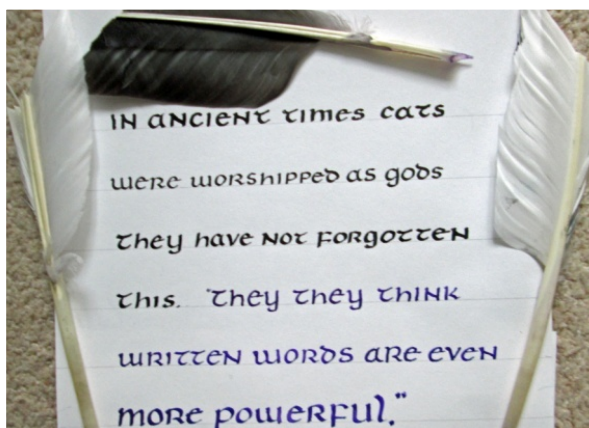 IN ANCIENT TIMES CATS
WERE WORSHIPPED AS GODS
THEY HAVE NOT FORGOTTEN
THIS. "THEY THEY THINK
WRITTEN WORDS ARE EVEN
MORE POWERFUL."